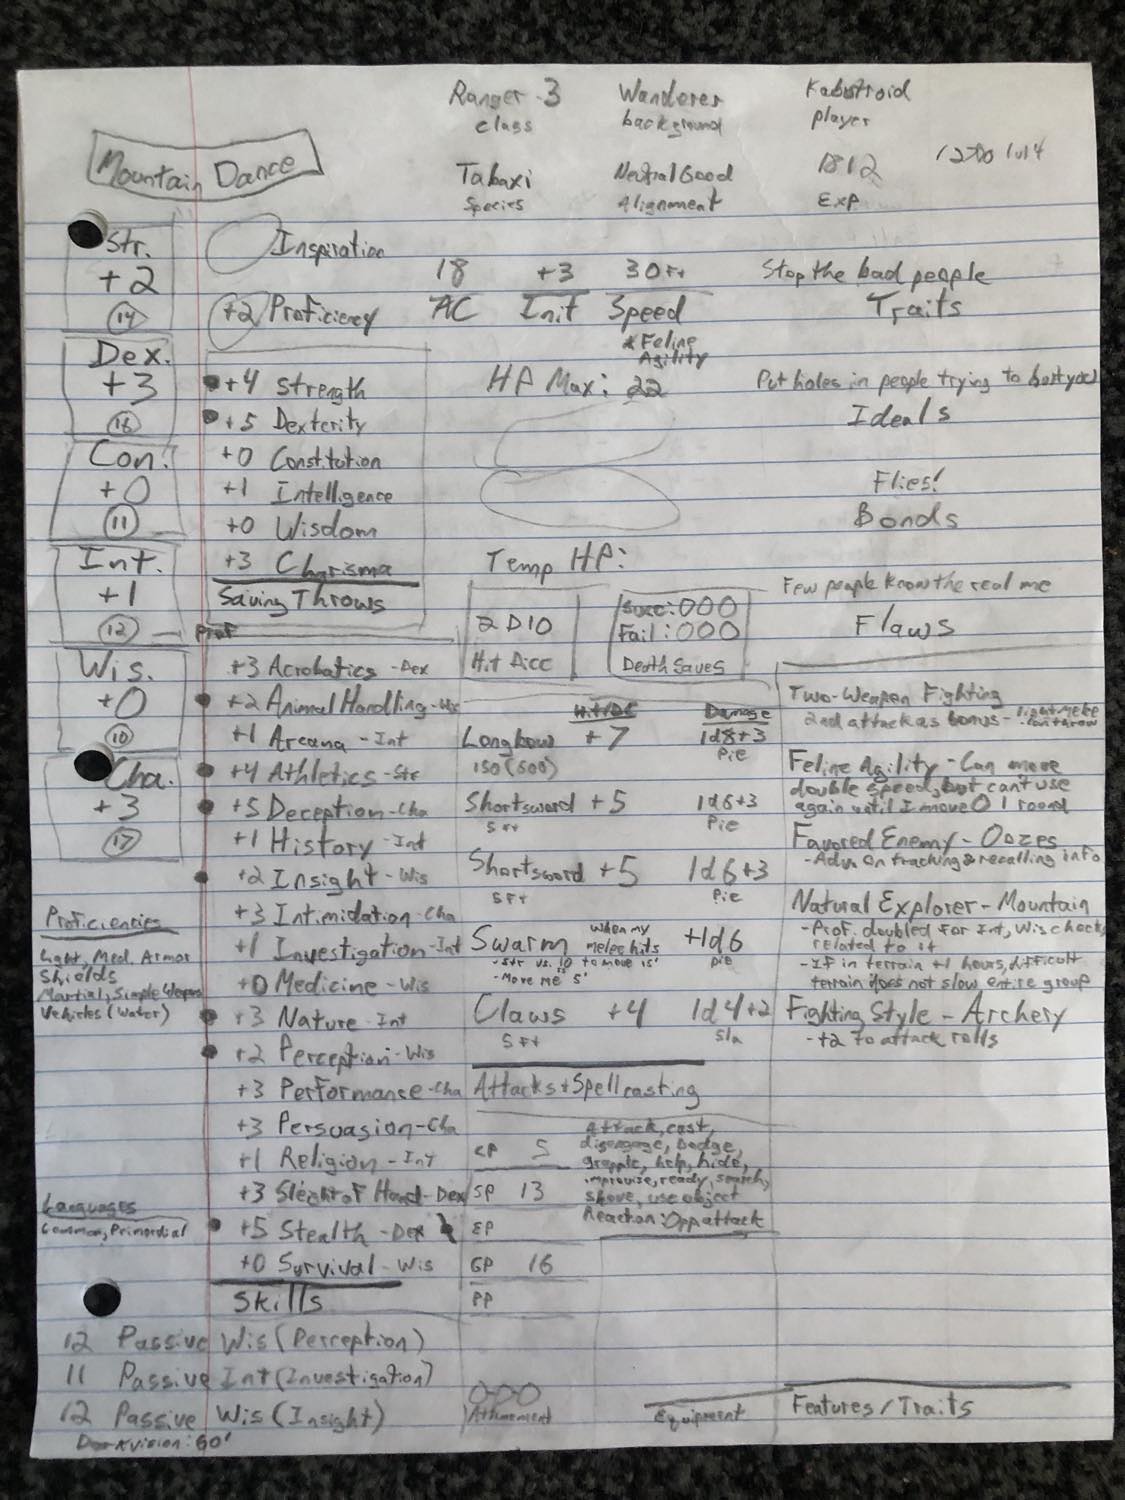 Ranger 3
class
Wanderer
background
Kabutroid
player
Mountain Dance
Tabaxi
Species
Neutral Good
Alignment
1812
Exp
Str.
+2
14
Dex.
+3
16
Con.
+0
11
Int.
+1
12
Wis.
+0
10
Cha.
+3
17
Inspiration
+2 Proficiency
18
AC
+3
Init
30 Ft
Speed
* Feline
Agility
HP Max: 22
Temp HP:
+4 Strength
+5 Dexterity
+0 Constitution
+1 Intelligence
+0 Wisdom
+3 Charisma
Saving Throws
Prof
+3 Acrobatics - Dex
+2 Animal Handling - Wis
+1 Arcana - Int
+4 Athletics - Str
+5 Deception - Cha
+1 History - Int
+2 Insight - Wis
+3 Intimidation - Cha
+1 Investigation - Int
+0 Medicine - Wis
+3 Nature - Int
+2 Perception - Wis
+3 Performance - Cha
+3 Persuasion - Cha
+1 Religion - Int
+3 Sleight of Hand - Dex
+5 Stealth - Dex
+0 Survival - Wis
Skills
Proficiencies
Light, Med. Armor
Shields
Martial, Simple Weapons
Vehicles (Water)
Languages
Common, Primordial
12 Passive Wis (Perception)
11 Passive Int (Investigation)
12 Passive Wis (Insight)
Darkvision: 60'
2 D10
Hit Dice
Succ: OOO
Fail: OOO
Death Saves
Hit/DC
Damage
Longbow +7 1d8+3
150 (500) Pie
Shortsword +5 1d6+3
5 Ft Pie
Shortsword +5 1d6+3
5 Ft Pie
Swarm when my melee hits +1d6
- Str vs. 10 to move 15' Pie
- Move me 5'
Claws +4 1d4+2
5 Ft Sla
Attacks + Spellcasting
CP 5
SP 13
EP
GP 16
PP
OOO
Attunement
Attack, cast,
disengage, Dodge,
grapple, help, hide,
improvise, ready, search,
shove, use object
Reaction: Opp attack
Equipment
Stop the bad people
Traits
Put holes in people trying to
Ideals
Flies!
Bonds
Few people know the real me
Flaws
Two-Weapon Fighting
2nd attack as bonus - light melee
can throw
Feline Agility - Can move
double speed, but cant use
again until I move 0 1 round
Favored Enemy - Oozes
- Adv. on tracking & recalling info
Natural Explorer - Mountain
- Prof. doubled for Int, Wis checks
related to it
- If in terrain +1 hours, difficult
terrain does not slow entire group
Fighting Style - Archery
- +2 to attack rolls
Features/Traits